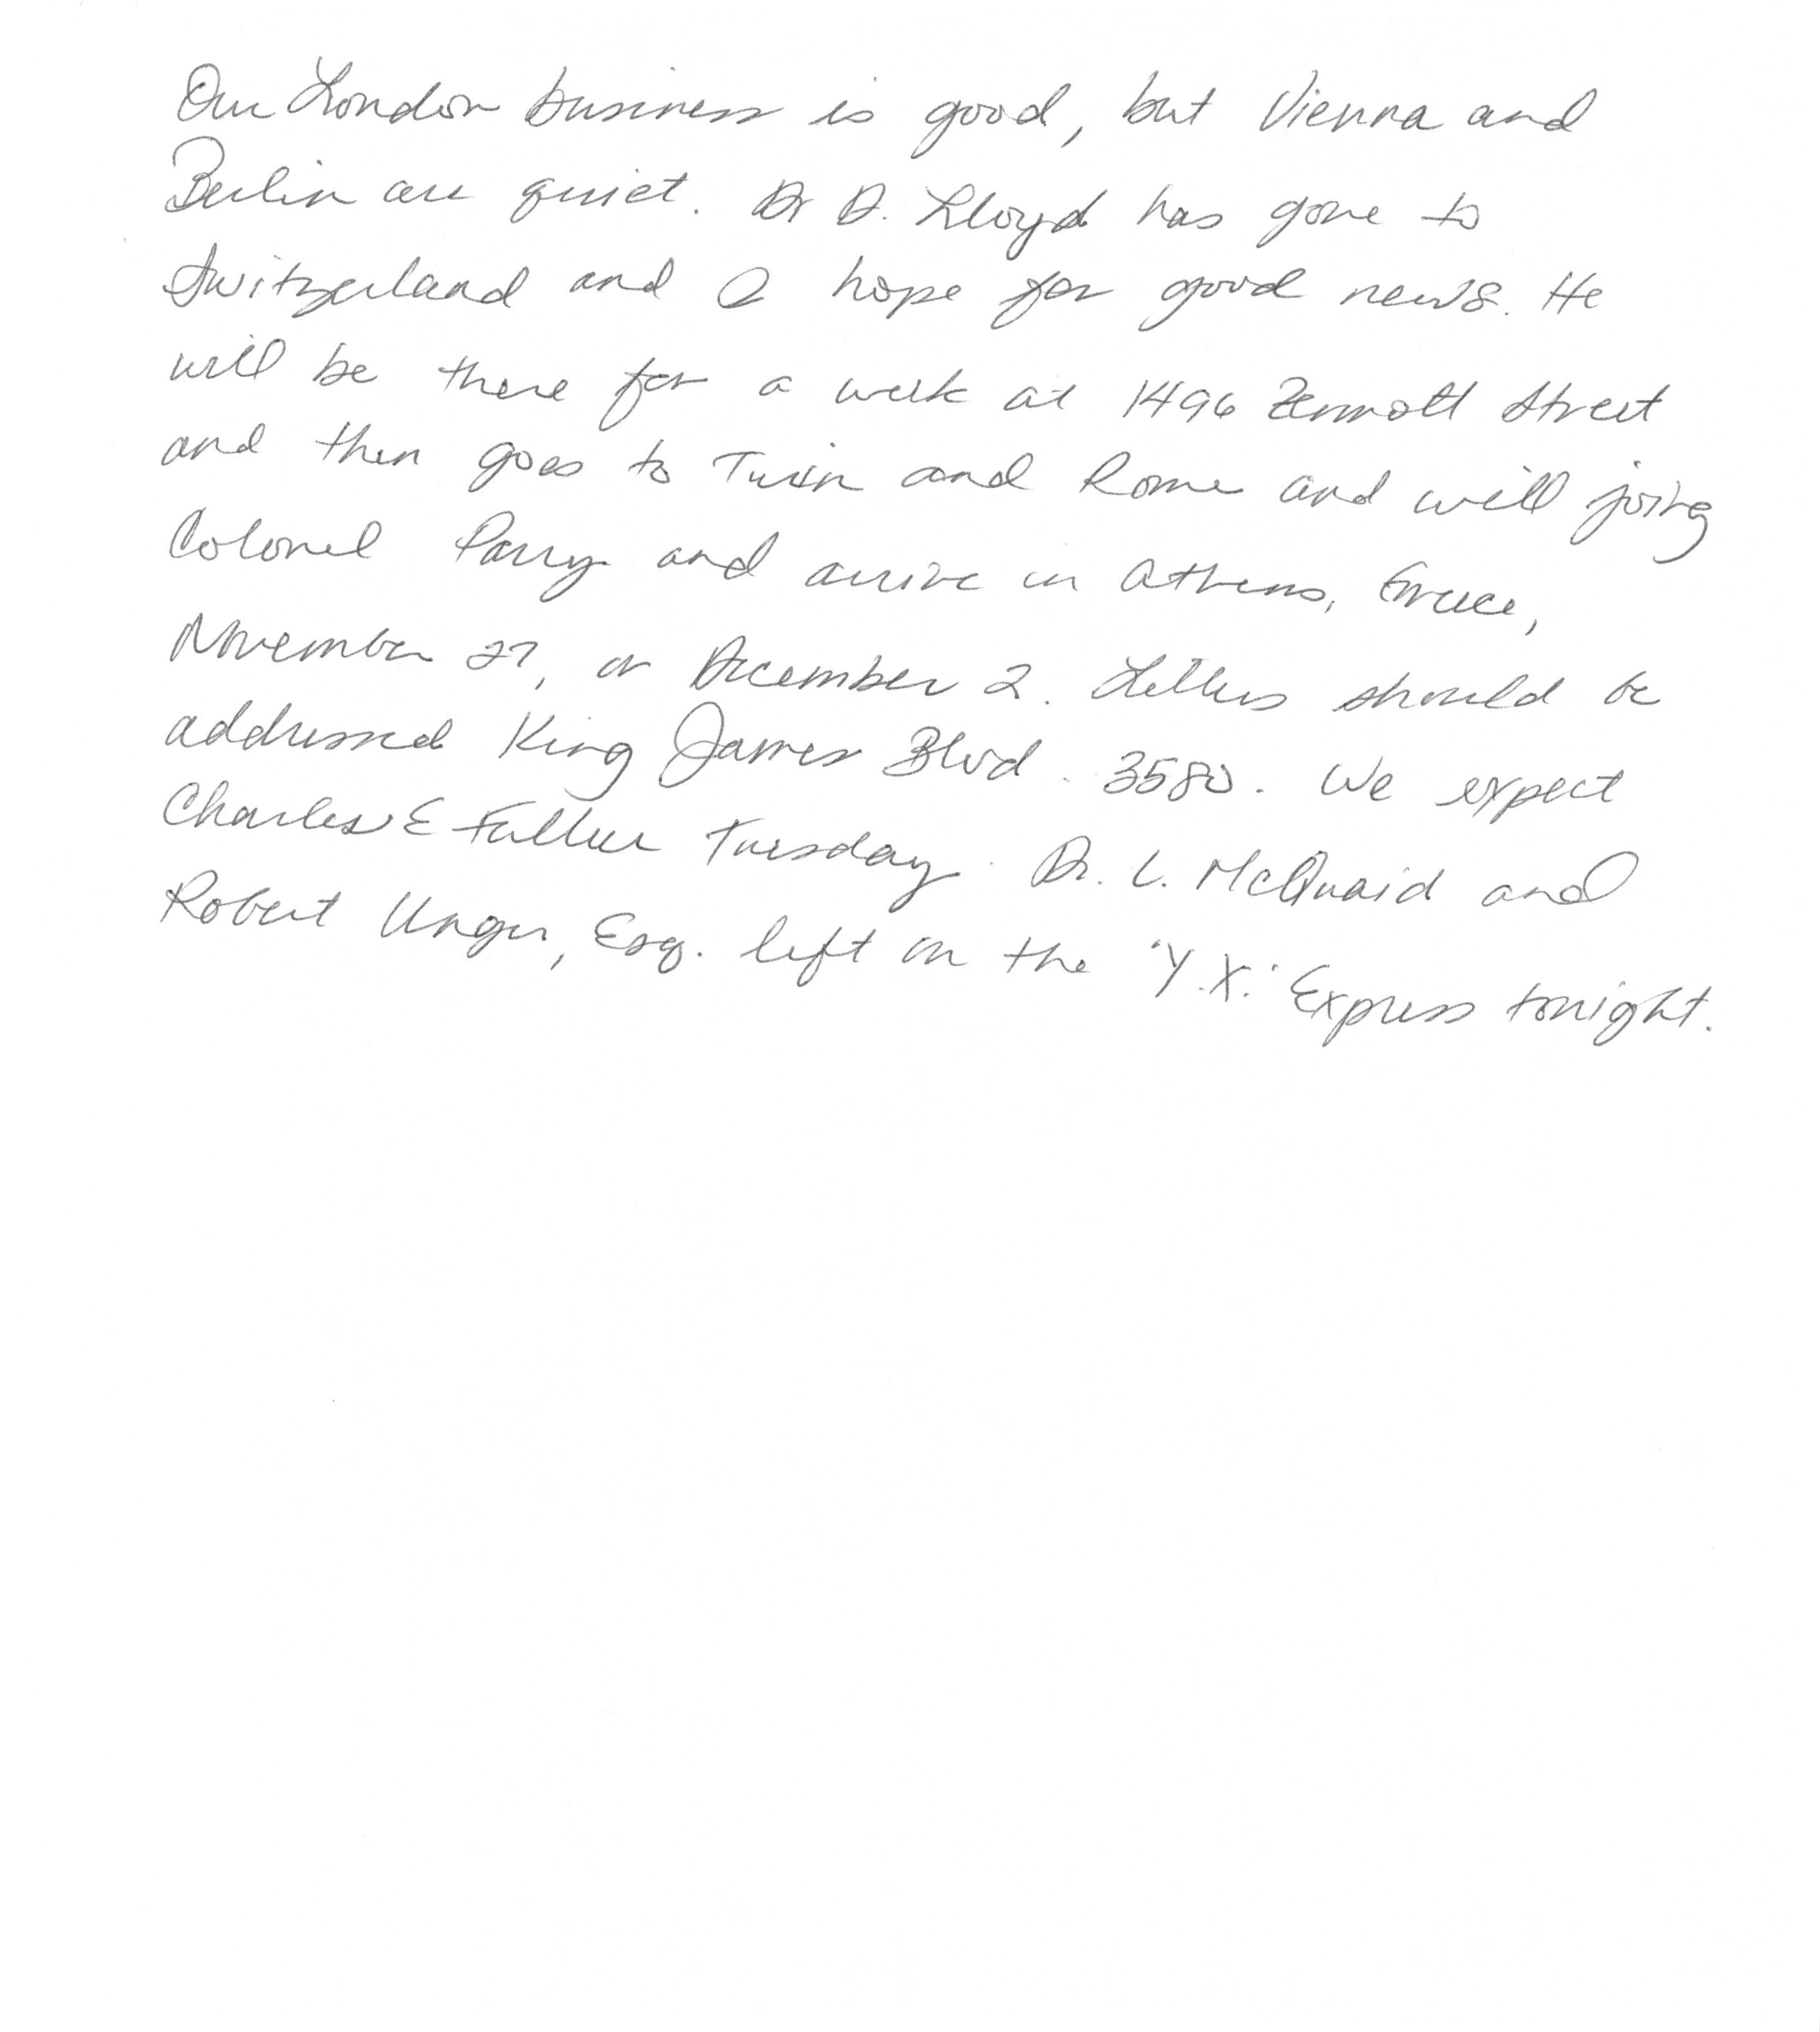 Our London business is good, but Vienna and
Berlin are quiet. Dr D. Lloyd has gone to
Switzerland and I hope for good news. He
will be there for a week at 1496 Zermott Street
and then goes to Turin and Rome and will joing
Colonel Parry and arrive in Athens, Greece,
November 27, or December 2. Letters should be
addressed King James Blvd. 3580. We expect
Charles E Fuller Tuesday. Dr. L. McQuaid and
Robert Unger, Esq. left on the 'Y.X.' Express tonight.